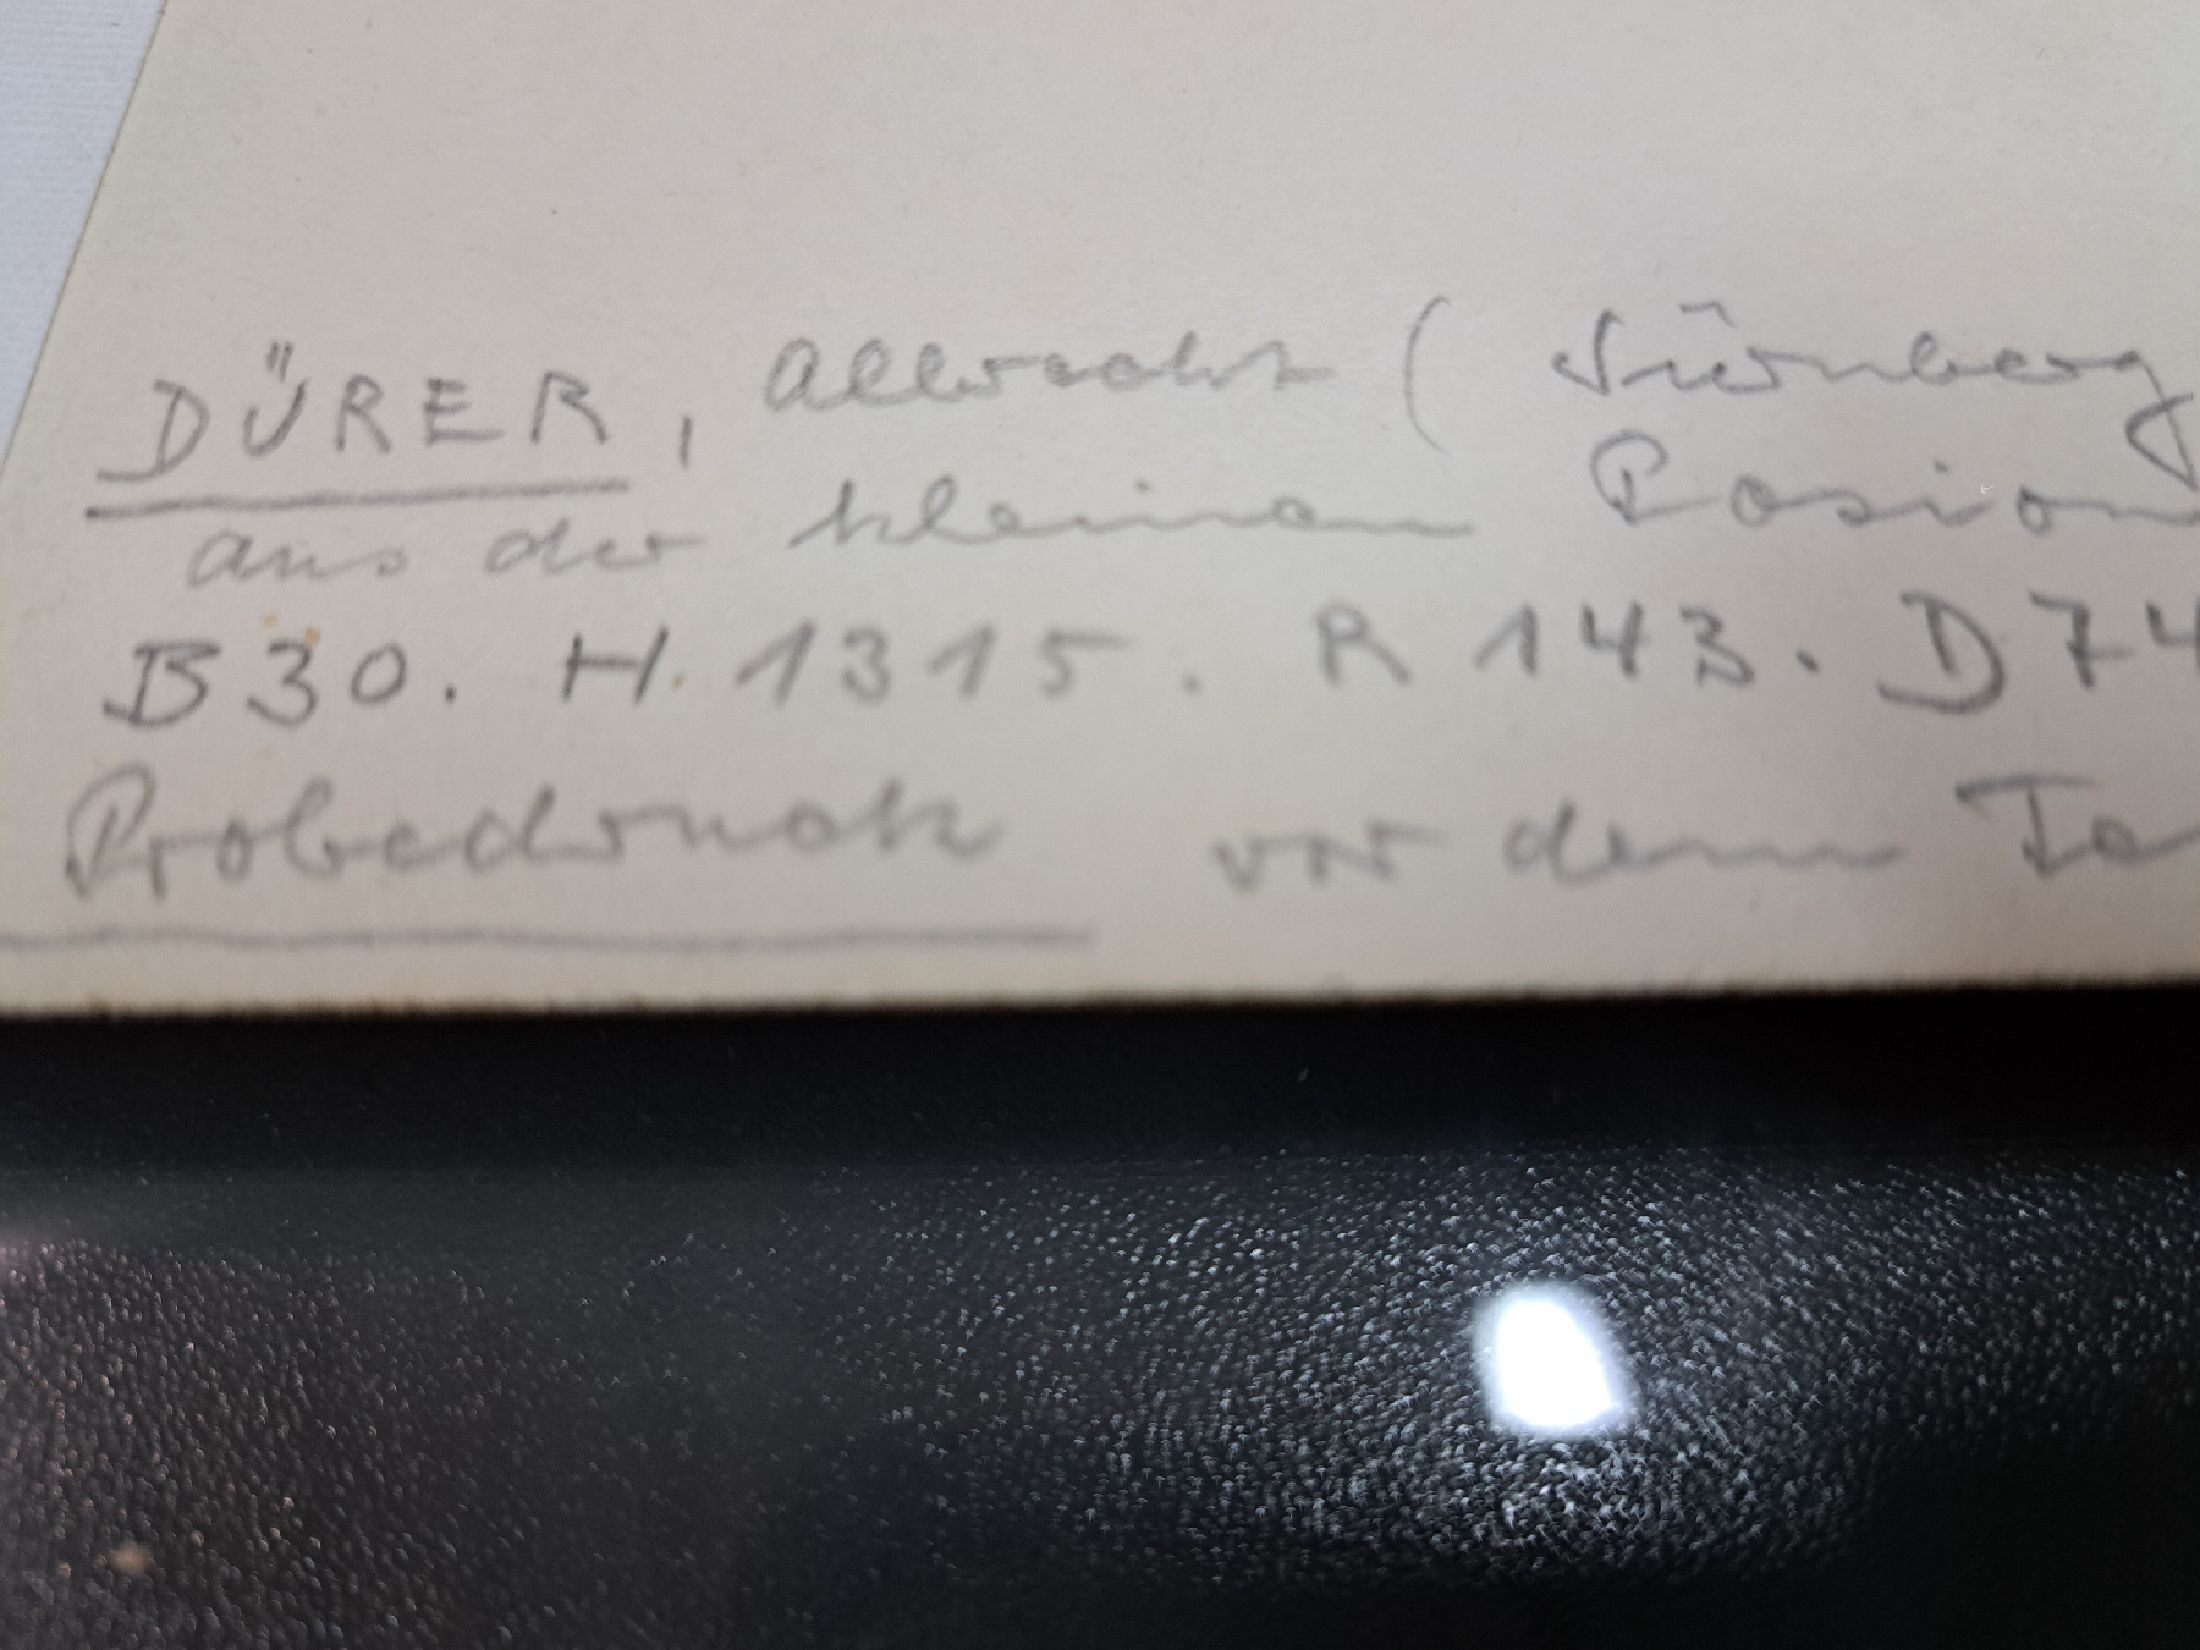 DÜRER, Albrecht ( Nürnberg
aus der kleinen Pasion
B 30. H. 1315. R 143. D 74
Probedruck vor dem Te